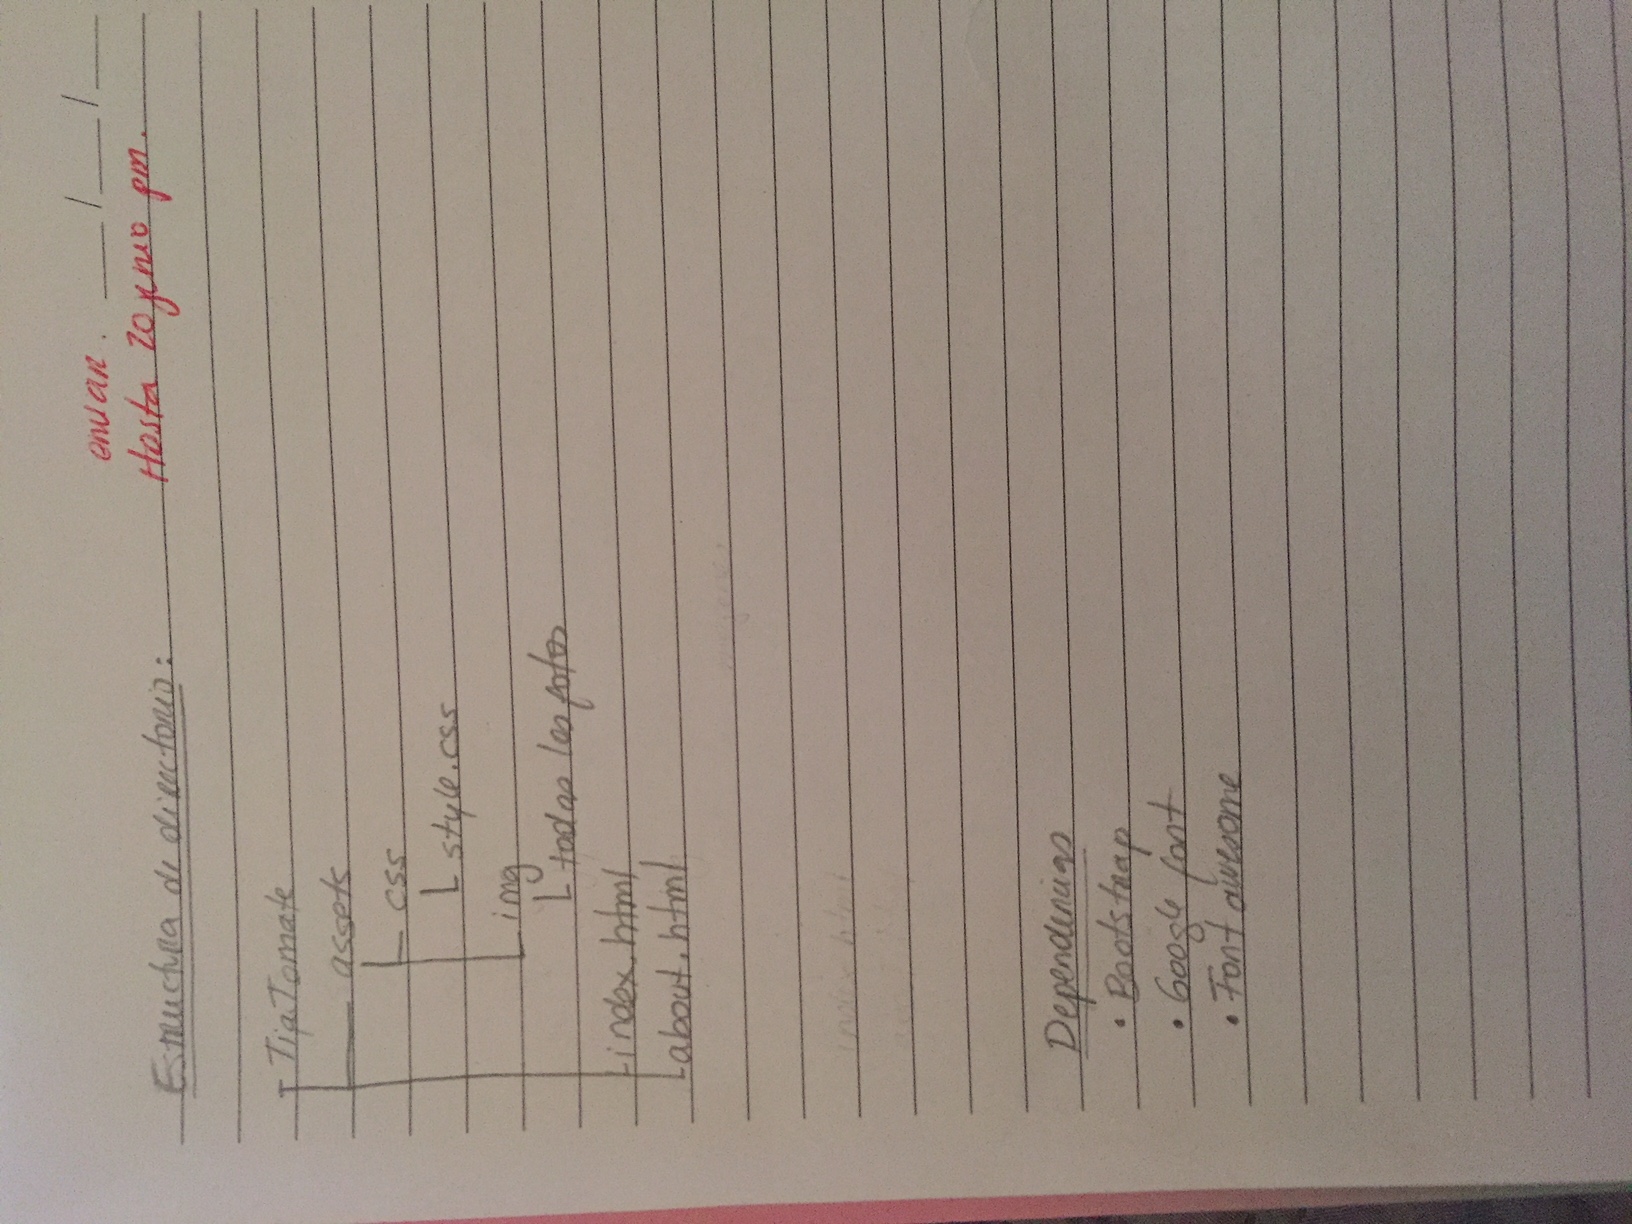 enviar. ___/___/___
Hasta 20 junio pm.
Estructura de directorio:
TiaTomate
assets
css
style.css
img
todas las fotos
index.html
about.html
index html
Dependencias
• Bootstrap
• Google font
• Font awesome